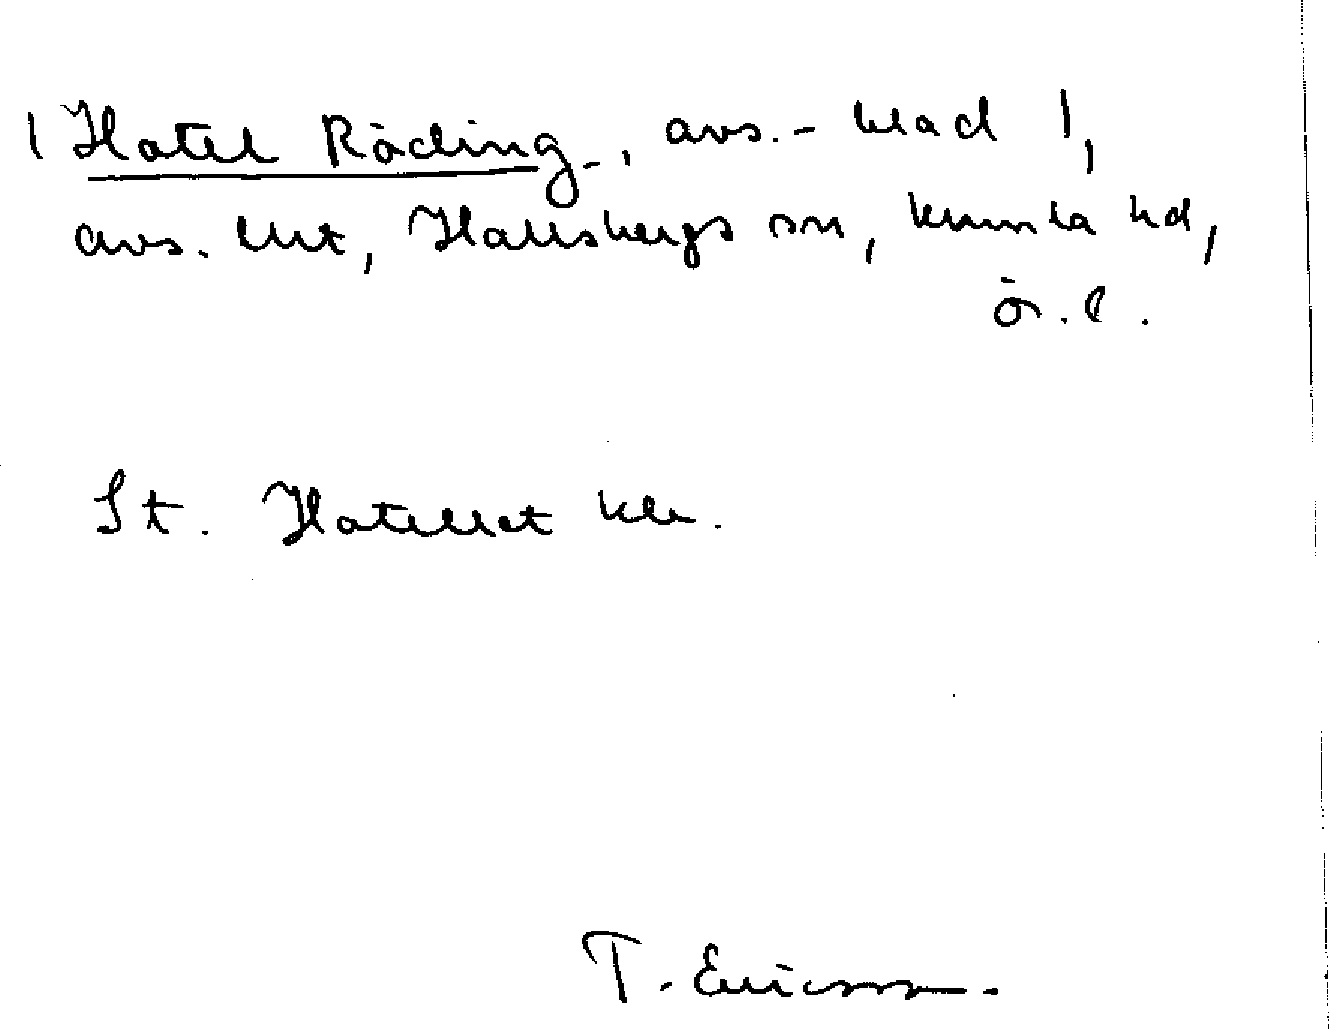 1 Hotel Röding, avs.-blad 1,
avs. litt, Hallsbergs sn, Kumla hd,
Ör. l.
St. Hotellet kll.
T. Ericsson.